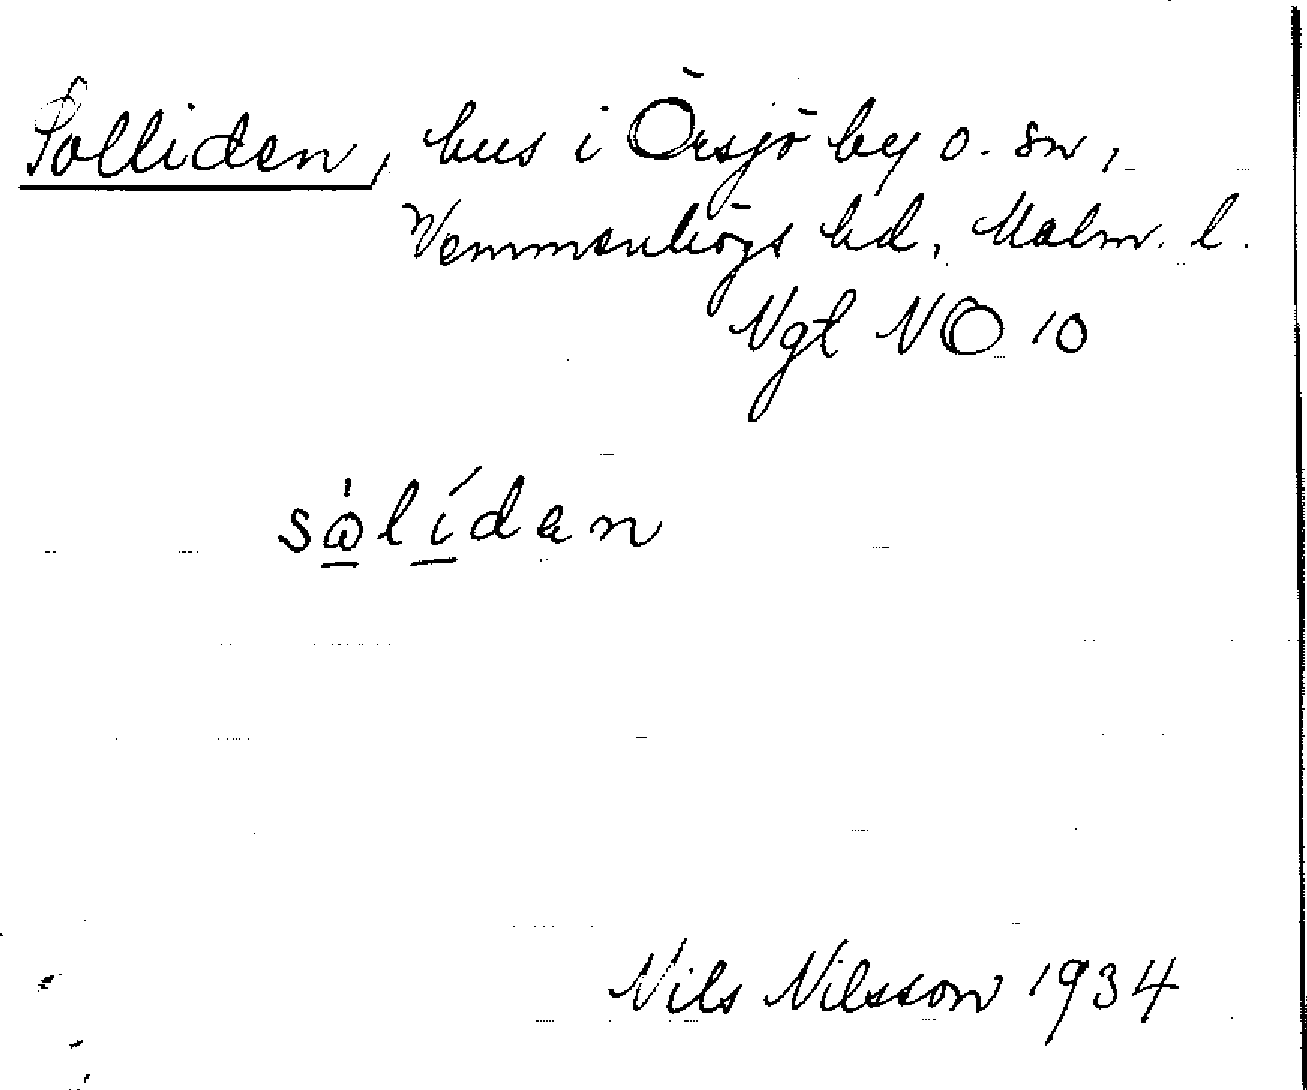 Solliden, hus i Örsjö by o. sn,
Vemmenhögs hd, Malm. l.
Vgl NO 10
sålídan
Nils Nilsson 1934